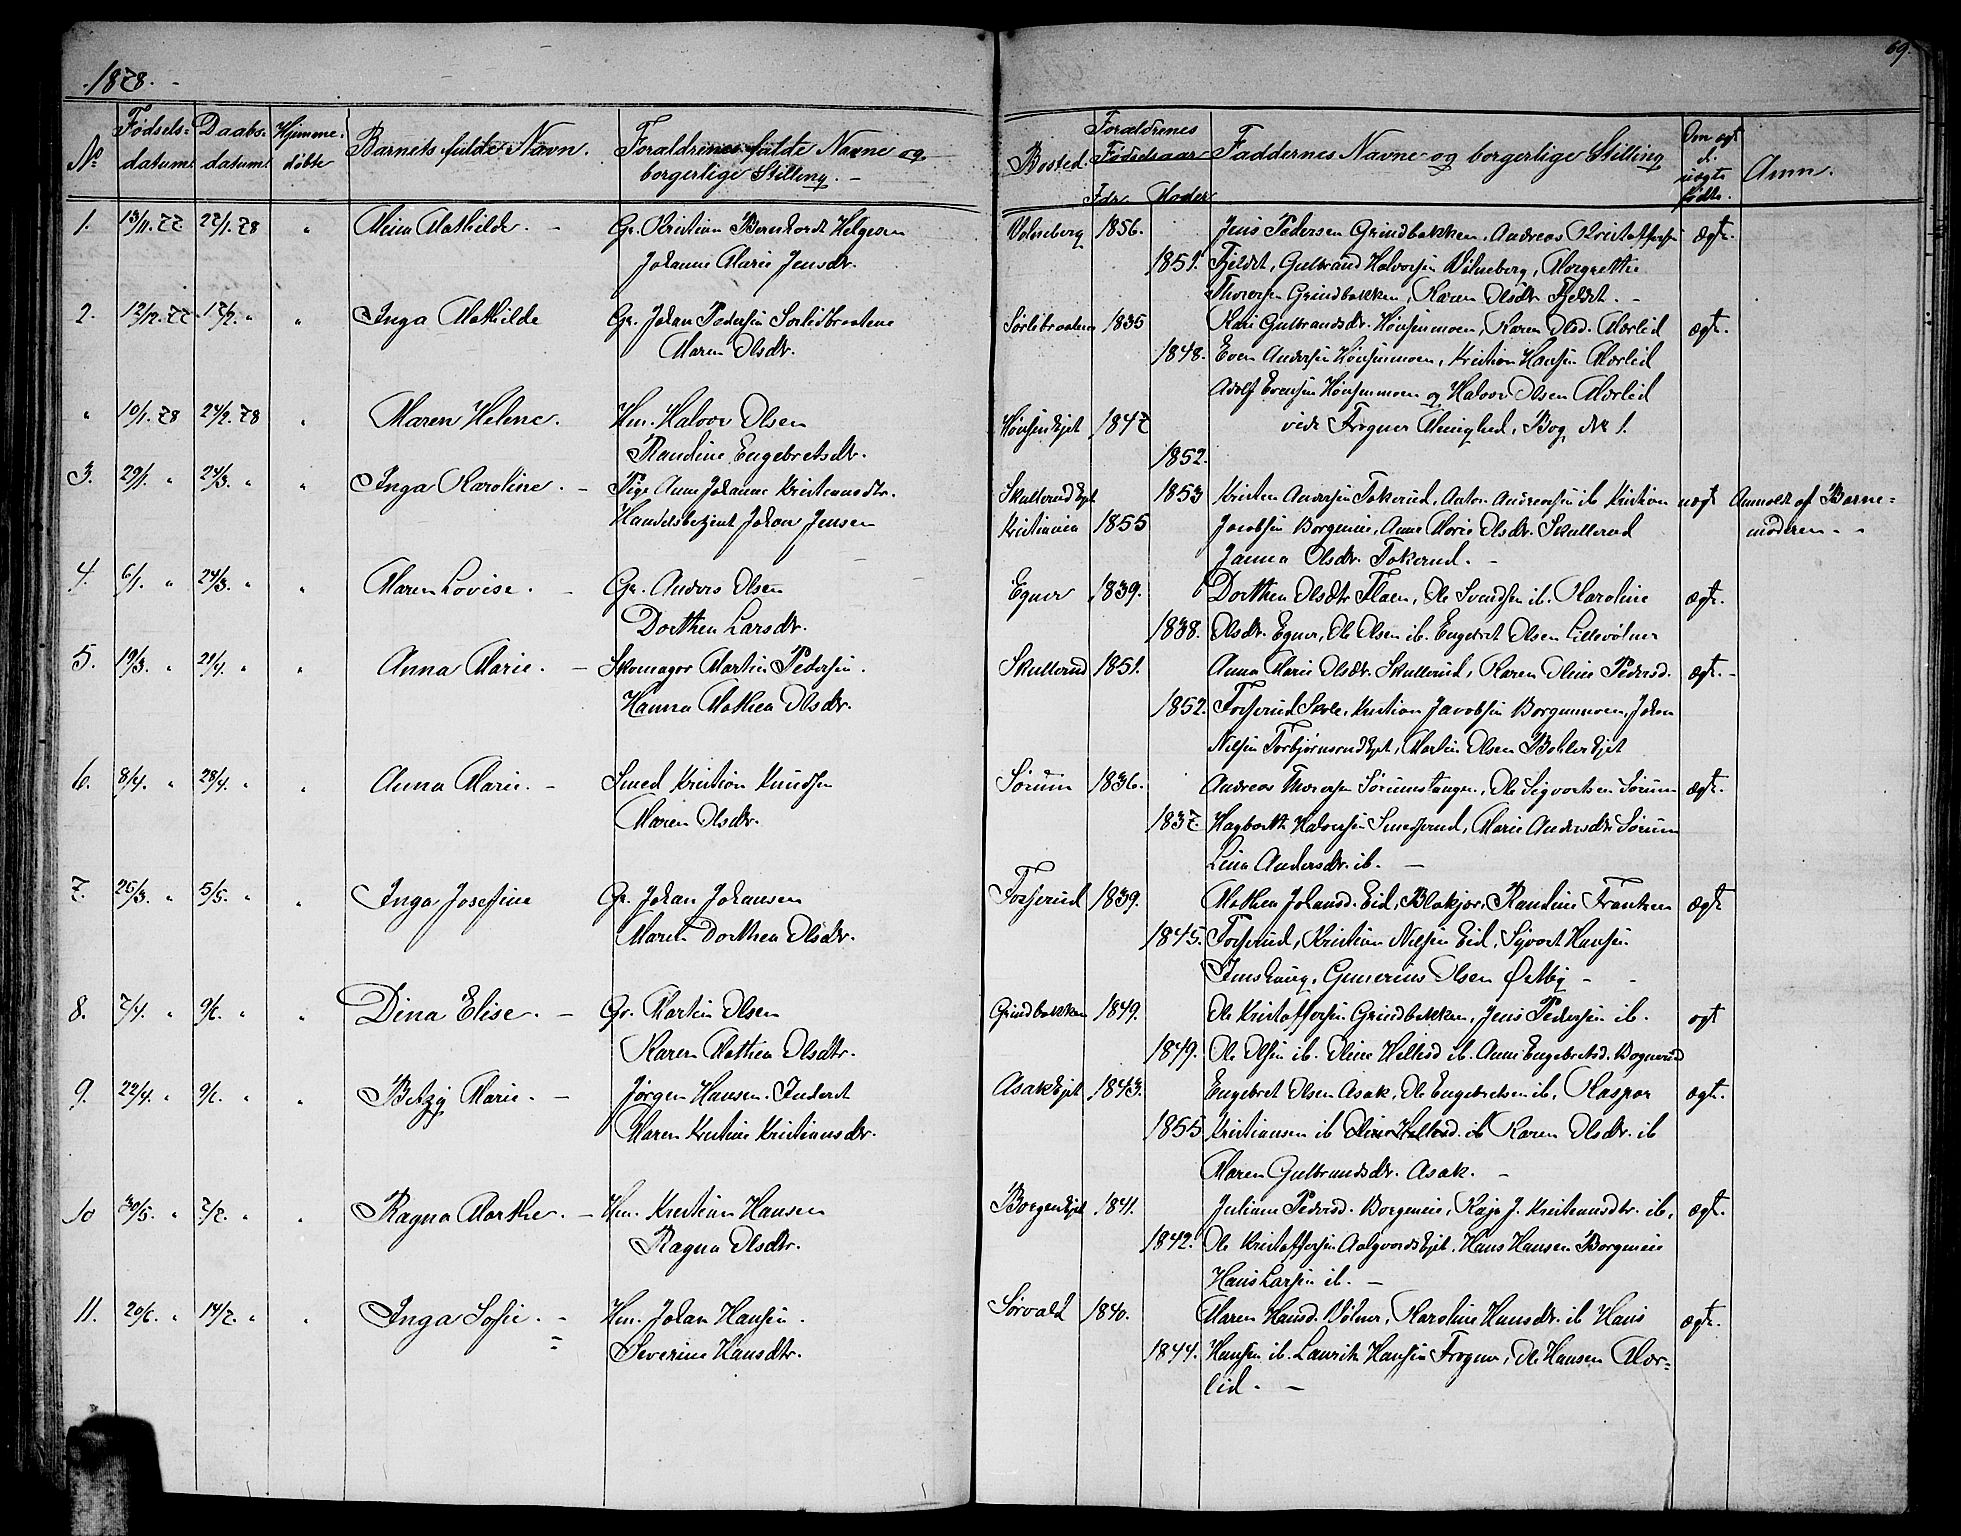 1878.
69.
No
Fødsels-
datum
Daabs-
datum
Hjemme-
døbte
Barnets fulde Navn.
Forældrenes fulde Navne og
borgerlige Stilling.
Bosted.
Forældrenes
Fødselsaar
Fdr. Moder
Faddernes Navne og borgerlige Stilling
Om ægt
el.
uægte
fødte.
Anm.
1. 13/11.77 27/1.78 " Mina Mathilde. - Gr. Kristian Bernhardt Helgesen
Johanne Marie Jensdr.
Volneberg 1856. Jens Pedersen Grindbakken, Andreas Kristoffersen ægt.
1851. Fjeldet, Gulbrand Halvorsen Volneberg, Margrethe
Thorersen Grindbakken, Karen Olsdr. Fjeldet. -
2. 12/12.77 17/2. " " Inga Mathilde Gr. Johan Pedersen Sørlibraatene
Maren Olsdr.
Sørlibraatene 1835 Kari Gulbrandsdr. Hønsenmoen, Karen Olsd. Mærlid ægt.
1848. Even Andersen Hønsenmoen, Kristian Hansen Mærlid
Adolf Evensen Hønsenmoen og Halvor Olsen Mærlid
" 10/1.78 24/2.78 " Maren Helene. Hm. Halvor Olsen
Randine Engebretsdr.
Hønsen Ejet 1847 vide Frogner Menighed, Bog No 1.
1852.
3. 29/1. " 24/3. " " Inga Karoline. - Pige Anne Johanne Kristiansdtr.
Handelsbetjent Johan Jensen
Skullerud Ejet 1853 Kristen Andersen Tokerud, Anton Andreassen ib Kristian uægt Anmeldt af Barne-
Kristiania 1855 Jacobsen Borgeneie, Anne Marie Olsdr. Skullerud moderen - -
Janna Olsdr. Tokerud. -
4. 6/1. " 24/3. " " Maren Lovise. - Gr. Anders Olsen
Dorthea Larsdr.
Egner 1839. Dorthea Olsdtr Flaen, Ole Svendsen ib. Karoline ægt.
1838. Olsdr. Egner, Ole Olsen ib. Engebret Olsen Lillevolner
5. 19/3. " 21/4. " " Anna Marie. - Skomager Martin Pedersen.
Hanna Mathea Olsdr.
Skullerud 1851. Anna Marie Olsdr. Skullerud, Karen Oline Pedersd. ægt. -
1852. Forserud Skole, Kristian Jacobsen Borgenmoen, Johan
Nilsen Torbjørnsrud Ejet, Martin Olsen Bøhler Ejet
6. 8/4. " 28/4. " " Anna Marie. - Smed Kristian Knudsen
Maren Olsdr.
Sørum 1836. Andreas Thorersen Sørumstangen, Ole Sigvartsen Sørum ægt.
1837 Hagbarth Halvorsen Smedsrud, Marie Andersdr Sørum
Lina Andersdr. ib. -
7. 25/3. " 5/5. " " Inga Josefine Gr. Johan Johansen
Maren Dorthea Olsdr.
Forserud 1839. Mathea Johansd. Eid, Blakjer, Randine Frantzen ægt
1845. Forserud, Kristian Nilsen Eid, Syvert Hansen
Gunerius Olsen Østby - -
8. 7/4. " 9/6. " " Dina Elise. - Gr. Martin Olsen
Karen Mathea Olsdtr.
Grindbakken 1849. Ole Kristoffersen Grindbakken, Jens Pedersen ib. ægt
1849. Ole Olsen ib. Oline Hellesd ib. Anne Engebretsd. Bognerud
9. 22/4. " 9/6. " " Betzy Marie. - Jørgen Hansen. Inderst
Maren Kristine Kristiansdr.
Asak Ejet 1843. Engebret Olsen Asak, Ole Engebretsen ib, Kaspar ægt.
1855 Kristiansen ib Oline Hellesd. ib Karen Olsdr. ib
Maren Gulbrandsdr. Asak. -
10 30/5. " 7/7. " " Ragna Marthe. - Hm. Kristian Hansen
Ragna Olsdtr.
Borgen Ejet 1841. Juliane Pedersd. Borgeneie, Kaja J. Kristiansdtr. ib, ægt.
1842. Ole Kristoffersen Aalgaards Ejet, Hans Hansen Borgeneie
Hans Larsen ib. -
11. 20/6. " 14/7. " " Inga Sofie. - Hm. Johan Hansen.
Severine Hansdtr.
Sørvald 1840. Maren Hansd. Volner, Karoline Hansdr. ib Hans ægt.
1844. Hansen ib. Lauritz Hansen Frogner, Ole Hansen Mær-
lid. -